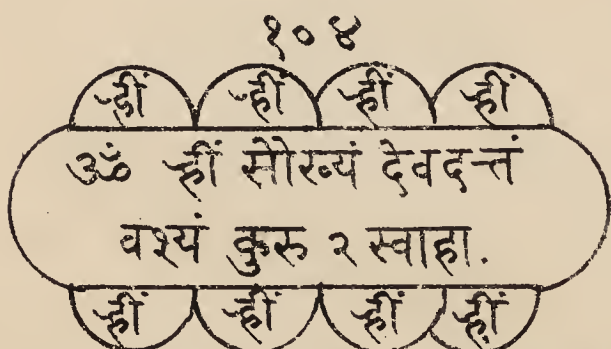 १०४
ह्रीं ह्रीं ह्रीं ह्रीं
ॐ ह्रीं सौख्यं देवदत्तं
वश्यं कुरु २ स्वाहा.
ह्रीं ह्रीं ह्रीं ह्रीं